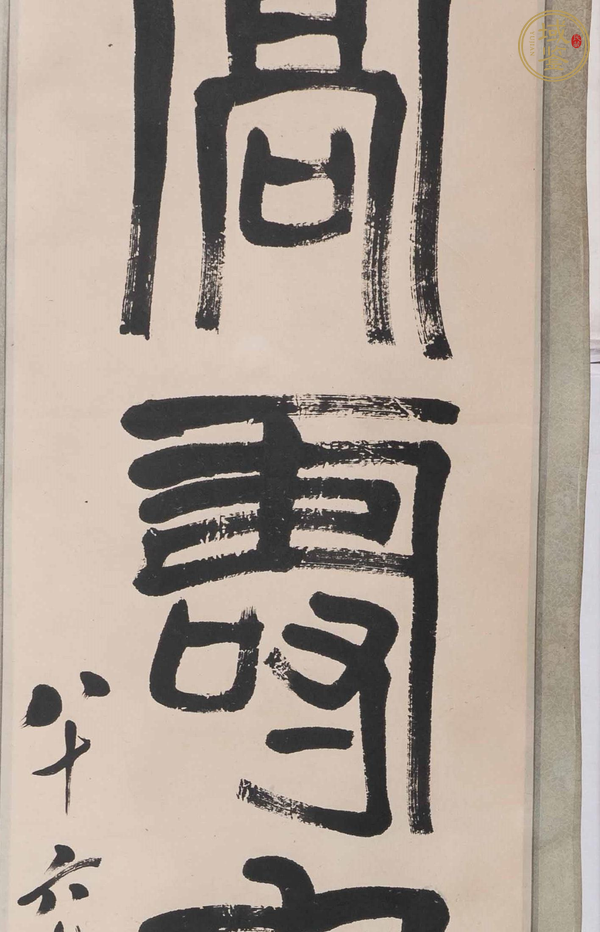 高壽
八十六